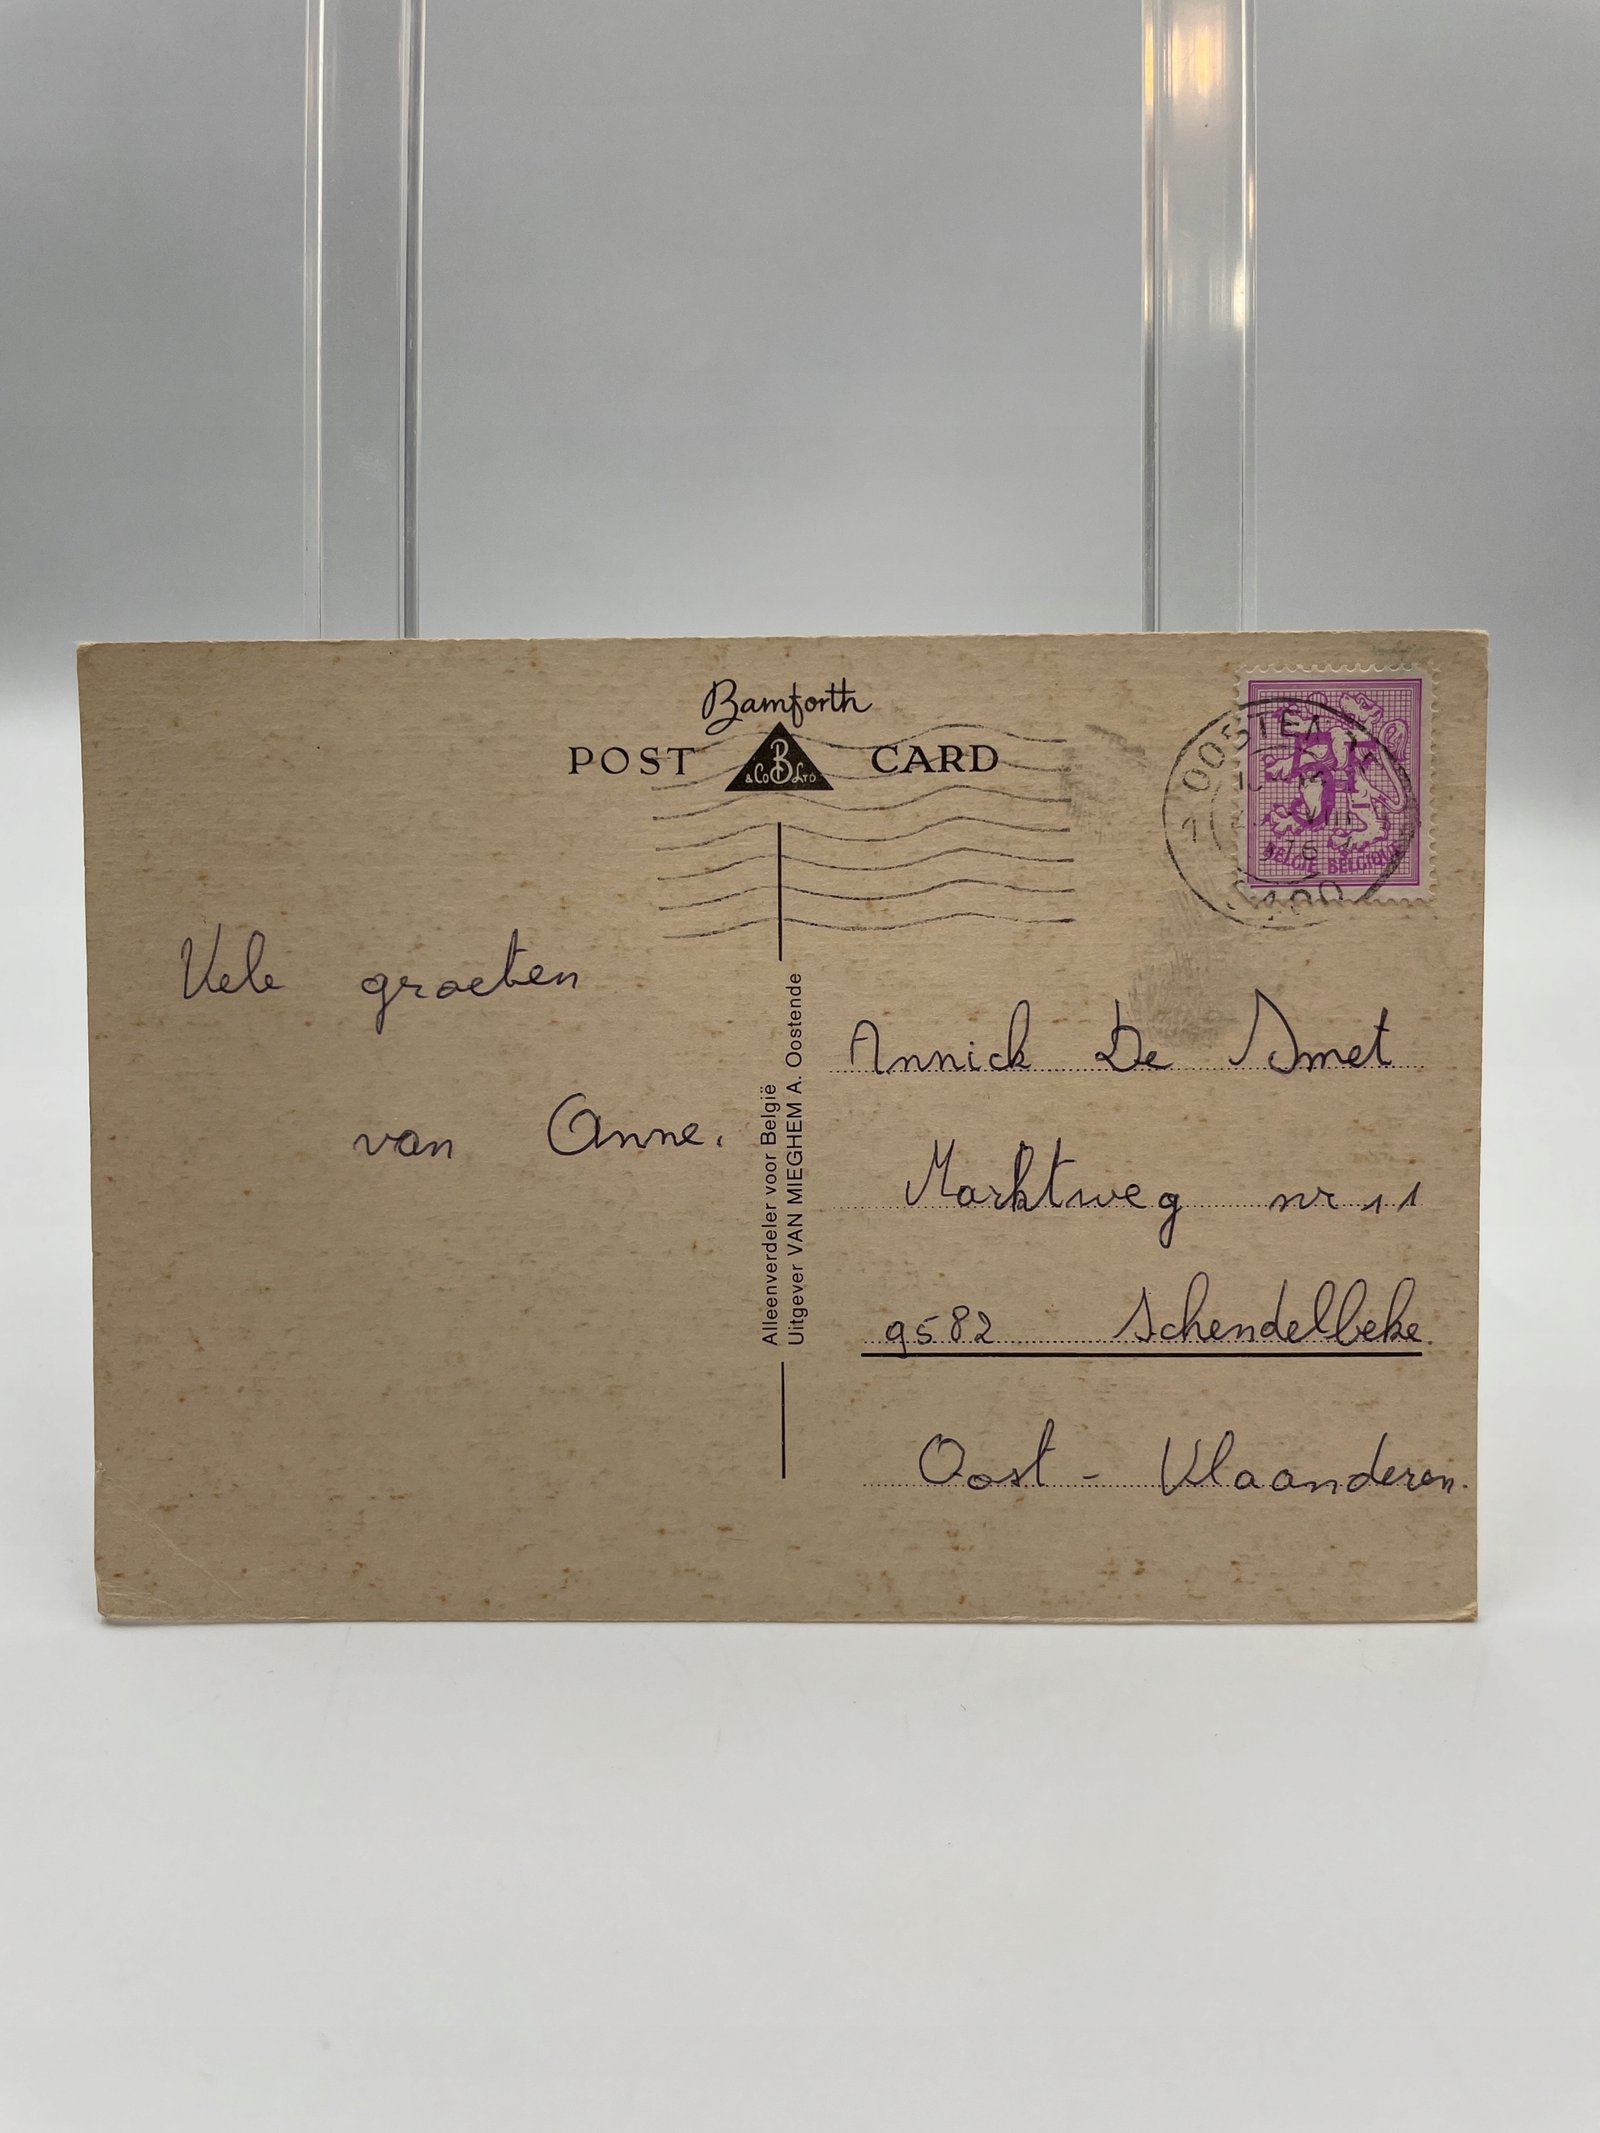 Bamforth
POST CARD
& Co B LTD
OOSTENDE
1
VIII
76
8400
5F
BELGIË BELGIQUE
Vele groeten
van Anne.
Alleenverdeler voor België
Uitgever VAN MIEGHEM A. Oostende
Annick De Smet
Marktweg nr 11
9582 Schendelbeke
Oost - Vlaanderen.